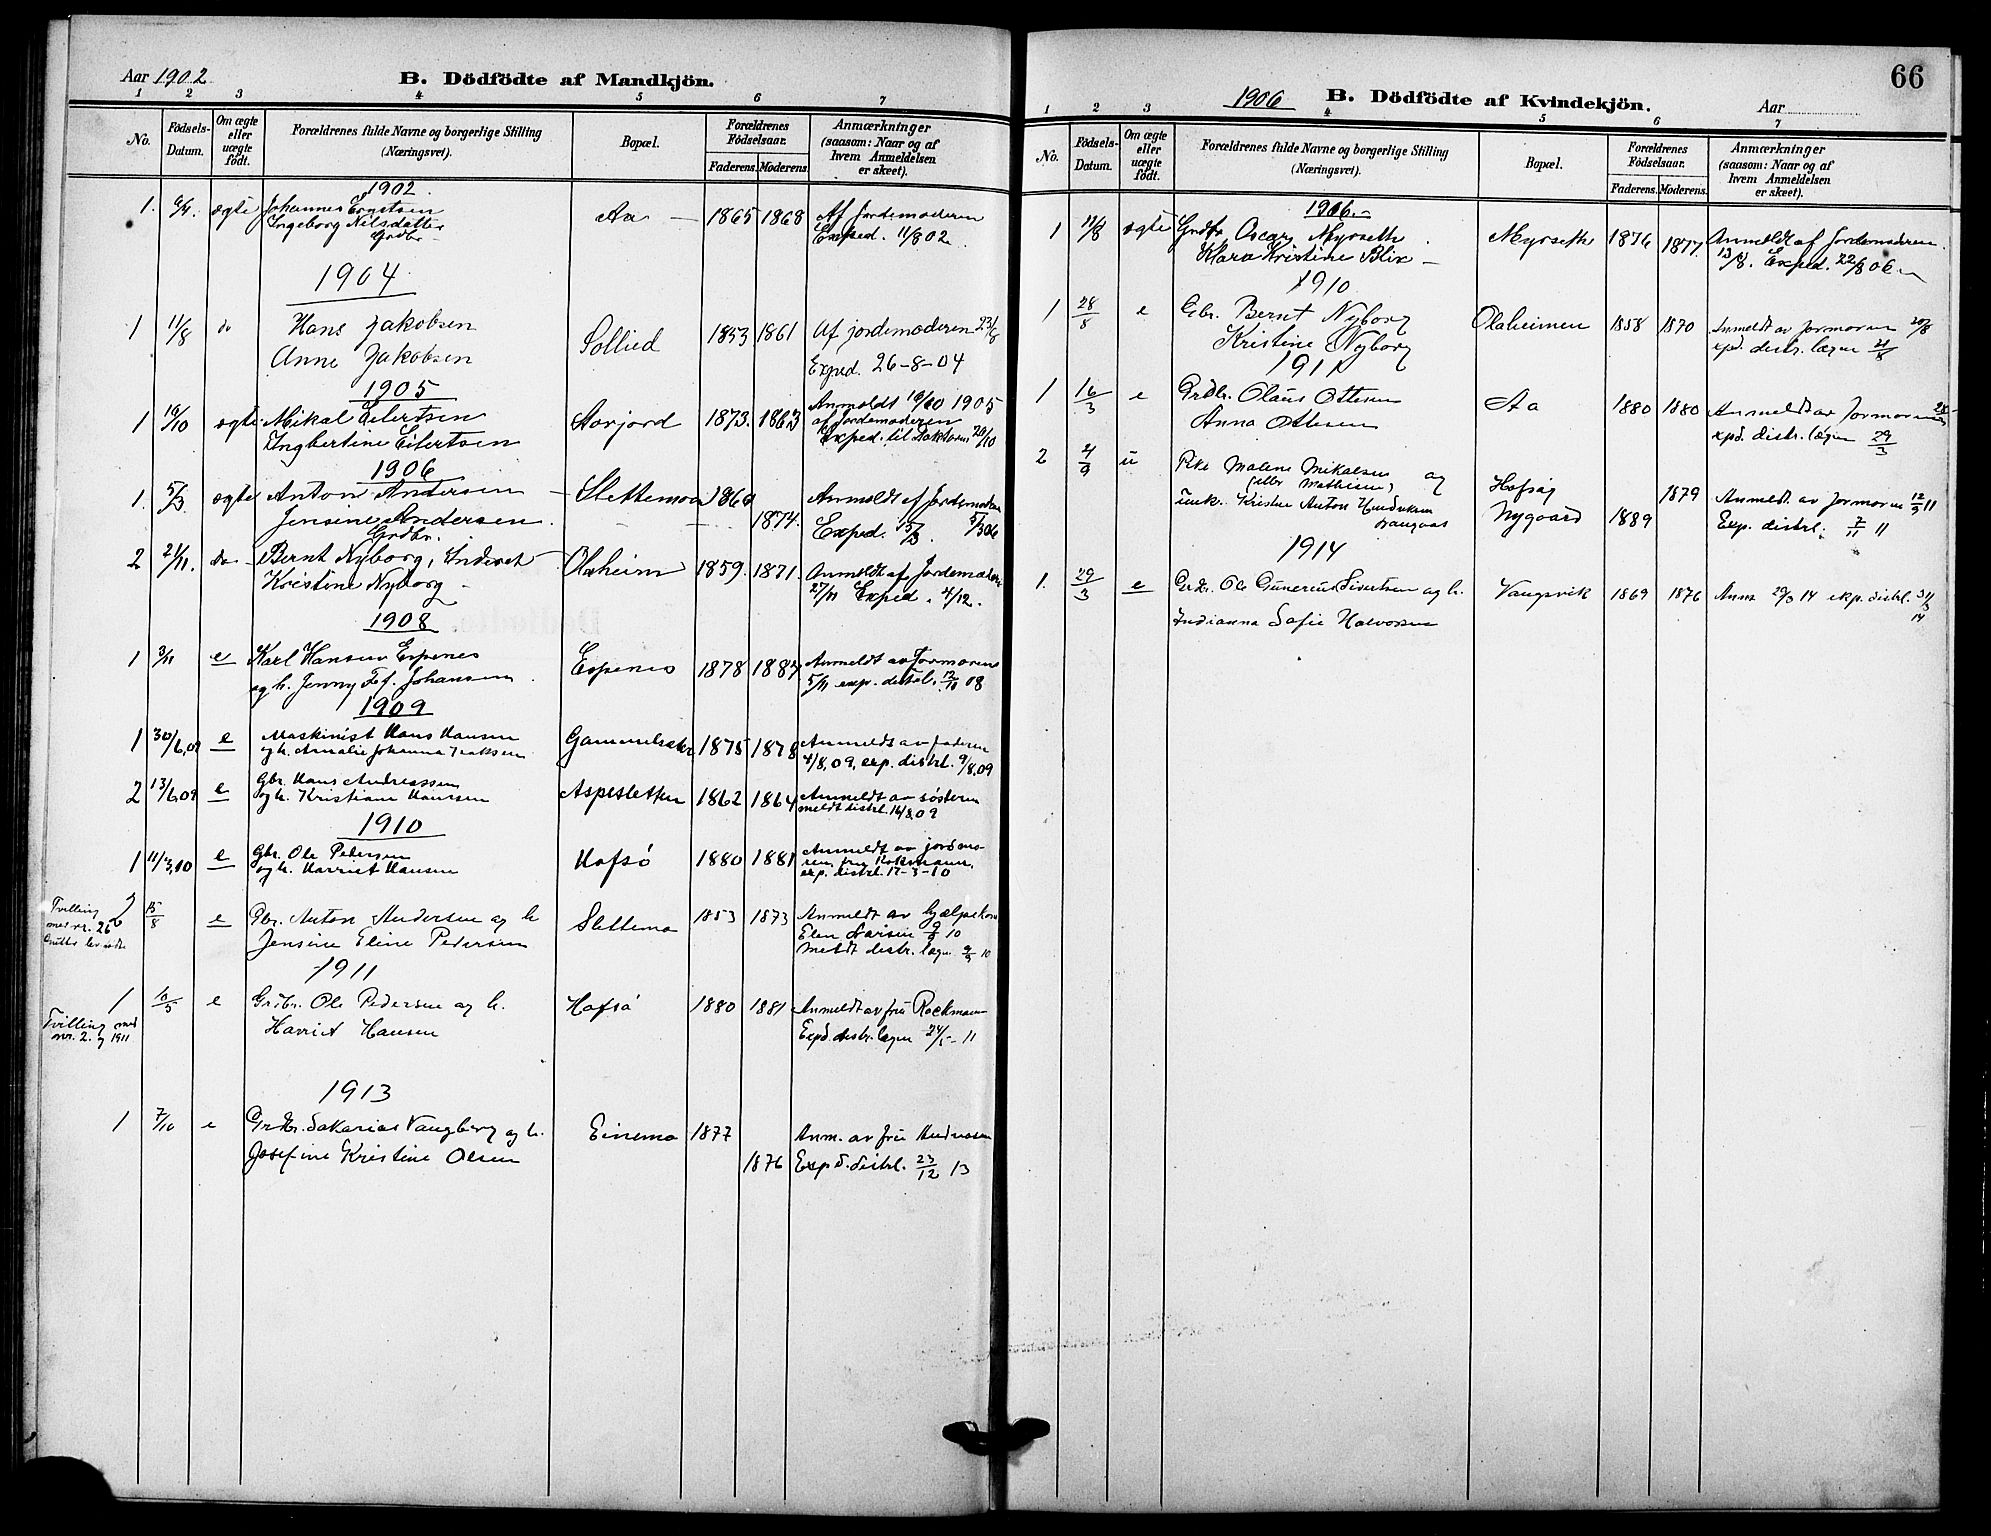 Aar 1902
B. Dödfödte af Mandkjön.
1 2 3 4 5 6 7
No.
Födsels-Datum.
Om ægte eller uægte födt.
Forældrenes fulde Navne og borgerlige Stilling (Næringsvei).
Bopæl.
Forældrenes Födselsaar.
Faderens. Moderens.
Anmærkninger (saasom: Naar og af hvem Anmeldelsen er skeet).
1902.
1. ægte Johannes Erntsen Aa — 1865 1868 Af Jordemoderen
Ingeborg Nilsdatter Exped. 11/8 02.
Grdbr.
1904
1 11/8 do Hans Jakobsen Sollied 1853 1861 Af jordemoderen 23/8
Anne Jakobsen Exped. 26-8-04
1905
1 10/10 ægte Mikal Eilertsen Storjord 1873. 1863 Anmeldt 16/10 1905
Ingbertine Eilertsen af Jordemoderen
Exped. til Doktoren 20/10
1906
1. 5/3 ægte Anton Andersen — Slettemoen Anmeldt af Jordemoderen
Jensine Andersen. 1874. Exped. 15/3. 5/3 06
Grdbr.
2 21/11. do Bernt Nyborg, Inderst — Olaheim 1859. 1871. Anmeldt af Jordemoderen
Kristine Nyborg — 27/11 Exped. 4/12.
1908
1 3/11 e Karl Hansen Espenes Espenes 1878 1887 Anmeldt av Jormoren
og h. Jenny Johansen. 5/11 exp. distrl. 12/10 08
1909
1 30/6,09 e Maskinist Hans Hansen Gammelsæter 1875 1878 Anmeldt av faderen
og h. Amalie Johanna Isaksen 4/8,09, exp. distrl. 9/8,09
2 13/6,09 e Gbr. Hans Andreassen Aspesletten 1862 1864 Anmeldt av søsteren
og h. Kristiane Hansen meldt distrl. 16/8,09
1910
1 11/3,10 e Gbr. Ole Pedersen Hofsö 1880 1881 Anmeldt av jordmo-
og h. Harriet Hansen ren, fru Rokmann,
exp. distrl. 17-3-10
Tvilling
med nr. 26
2 15/8 e Gbr. Anton Andersen og h. Slettemo 1853 1873 Anmeldt av hjælpekone
Jensine Eline Pedersen Elen Larsen 9/9 10
Meldt distr. lægen 9/9 10
1911
1 10/5 e Grdbr. Ole Pedersen og h. Hofsö 1880 1881 Anmeldt av fru Rockmann
Harriet Hansen Expd. distr. lægen 24/5 - 11
Tvilling med
nr. 2. 1911
1913
1 7/10 e Grdbr. Sakarias Vangberg og h. Einemo 1877 Anm. av fru Andreasen
Josefine Kristine Olsen 1876 Exp d. distrl. 23/12 13
66
1906 B. Dödfödte af Kvindekjön. Aar
1 2 3 4 5 6 7
No.
Födsels-Datum.
Om ægte eller uægte födt.
Forældrenes fulde Navne og borgerlige Stilling (Næringsvei).
Bopæl.
Forældrenes Födselsaar.
Faderens. Moderens.
Anmærkninger (saasom: Naar og af hvem Anmeldelsen er skeet).
1906.—
1 11/8 ægte Grdbr Oscar Myrseth. Myrseth 1876 1877. Anmeldt af Jordemoderen.
Klara Kristine Blix — 13/8. Exped. 22/8 06
1910
1 28/8 e Gbr. Bernt Nyborg Olaheimen 1858 1870 Anmeldt av Jormoren 20/8
Kristine Nyborg expd. distr. lægen 21/8
1911
1 16/3 e Grdbr. Olaus Ottesen Aa 1880 1880 Anmeldt av Jormoren 28
Anna Ottesen expd. distr. lægen 29/3
2 4/9 u Pike Malene Mikalsen og Hofsöy 1879 Anmeldt av Jormoren 12/9 11
(eller Mathisen)
Umk. Kristen Anton Hendriksen Nygaard 1889 Exp. distrl. 7/11 11
1914
1. 29/3 e Grdbr. Ole Gunerius Sivertsen og h. Vangsvik 1869 1876 Anm 29/3 14 exp. distrl. 31/3 14
Indianna Sofie Halvorsen